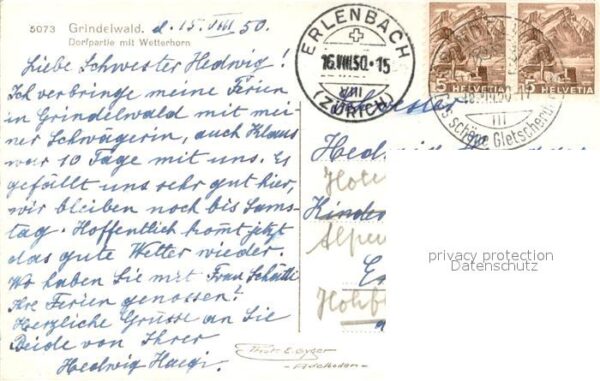 5073 Grindelwald. d. 15. VIII 50.
Dorfpartie mit Wetterhorn
Liebe Schwester Hedwig!
Ich verbringe meine Ferien
in Grindelwald mit mei-
ner Schwägerin, auch Klaus
war 10 Tage mit uns. Es
gefällt uns sehr gut hier,
wir bleiben noch bis Sams-
tag. Hoffentlich komt jetzt
das gute Wetter wieder.
Wo haben Sie mit Frau
Ihre Ferien genossen?
Herzliche Grüsse an Sie
Beide von Ihrer
Hedwig Haegi.
ERLENBACH
16.VIII.50.-15
VIII
(ZÜRICH)
5 HELVETIA
5 HELVETIA
III
schöne Gletscherd
Schwester
Hedwig
Hote
Kinder
Alpen
E
privacy protection
Datenschutz
Phot. E. Gyger
- Adelboden -